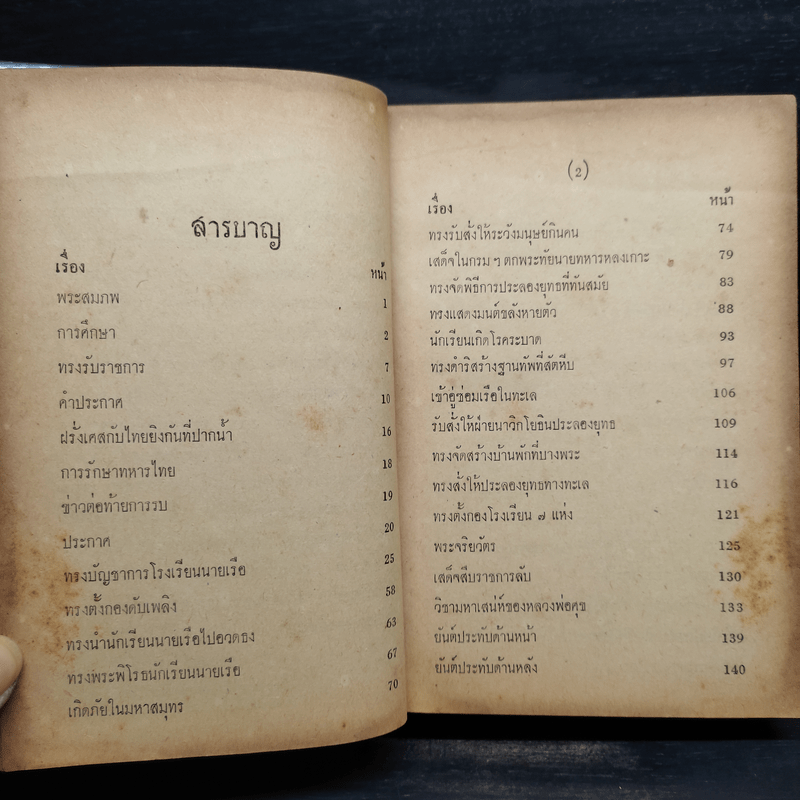 สารบาญ
เรื่อง หน้า
พระสมภพ 1
การศึกษา 2
ทรงรับราชการ 7
คำประกาศ 10
ฝรั่งเศสกับไทยยิงกันที่ปากน้ำ 16
การรักษาทหารไทย 18
ข่าวต่อท้ายการรบ 19
ประกาศ 20
ทรงบัญชาการโรงเรียนนายเรือ 25
ทรงตั้งกองดับเพลิง 58
ทรงนำนักเรียนนายเรือไปอวดธง 63
ทรงพระพิโรธนักเรียนนายเรือ 67
เกิดภัยในมหาสมุทร 70
(2)
เรื่อง หน้า
ทรงรับสั่งให้ระวังมนุษย์กินคน 74
เสด็จในกรม ฯ ตกพระทัยนายทหารหลงเกาะ 79
ทรงจัดพิธีการประลองยุทธที่ทันสมัย 83
ทรงแสดงมนต์ขลังหายตัว 88
นักเรียนเกิดโรคระบาด 93
ทรงดำริสร้างฐานทัพที่สัตหีบ 97
เข้าอู่ซ่อมเรือในทะเล 106
รับสั่งให้ฝ่ายนาวิกโยธินประลองยุทธ 109
ทรงจัดสร้างบ้านพักที่บางพระ 114
ทรงสั่งให้ประลองยุทธทางทะเล 116
ทรงตั้งกองโรงเรียน ๗ แห่ง 121
พระจริยวัตร 125
เสด็จสืบราชการลับ 130
วิชามหาเสน่ห์ของหลวงพ่อศุข 133
ยันต์ประทับด้านหน้า 139
ยันต์ประทับด้านหลัง 140